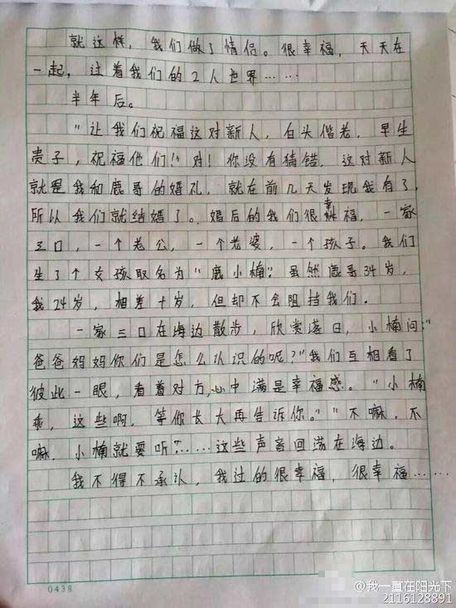 就这样，我们做了情侣。很幸福，天天在
一起，过着我们的2人世界……
半年后。
“让我们祝福这对新人，白头偕老，早生
贵子，祝福他们！”对！你没有猜错，这对新人
就是我和鹿哥的婚礼，就在前几天发现我有了，
所以我们就结婚了。婚后的我们很幸福，一家
三口，一个老公，一个老婆，一个孩子。我们
生了个女孩取名为“鹿小楠”虽然鹿哥34岁，
我24岁，相差十岁，但却不会阻挡我们。
一家三口在海边散步，欣赏落日，小楠问：“
爸爸妈妈你们是怎么认识的呢？”我们互相看了
彼此一眼，看着对方，心中满是幸福感。“小楠
乖，这些啊，等你长大再告诉你。”“不嘛，不
嘛，小楠就要听”……这些声音回荡在海边。
我不得不承认，我过的很幸福，很幸福……
0438
@我一直在阳光下
2116128891